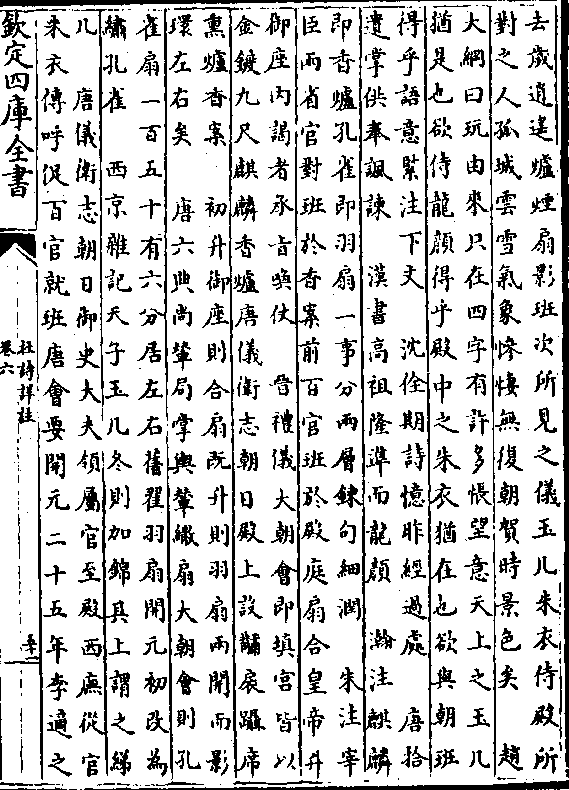 去歲逍遙爐煙扇影班次所見之儀玉几朱衣侍殿所
對之人孤城雲雪氣象慘悽無復朝賀時景色矣　趙
大綱曰玩由來只在四字有許多悵望意天上之玉几
猶是也欲侍龍顔得乎殿中之朱衣猶在也欲與朝班
得乎語意緊注下文　沈佺期詩憶昨經過處　唐拾
遺掌供奉諷諫　漢書高祖隆準而龍顔　瀚注麒麟
即香爐孔雀即羽扇一事分兩層鍊句細潤　朱注宰
臣兩省官對班於香案前百官班於殿庭扇合皇帝升
御座内謁者承旨喚仗　晉禮儀大朝會即填宫皆以
金鍍九尺麒麟香爐唐儀衛志朝日殿上設黼扆躡席
熏爐香案　初升御座則合扇既升則羽扇兩開而影
環左右矣　唐六典尚輦局掌輿輦繖扇大朝會則孔
雀扇一百五十有六分居左右舊翟羽扇開元初改為
繡孔雀　西京雜記天子玉几冬則加錦其上謂之綈
几　唐儀衛志朝日御史大夫領屬官至殿西廡從官
朱衣傳呼促百官就班唐會要開元二十五年李適之
欽定四庫全書
杜詩詳註
卷六